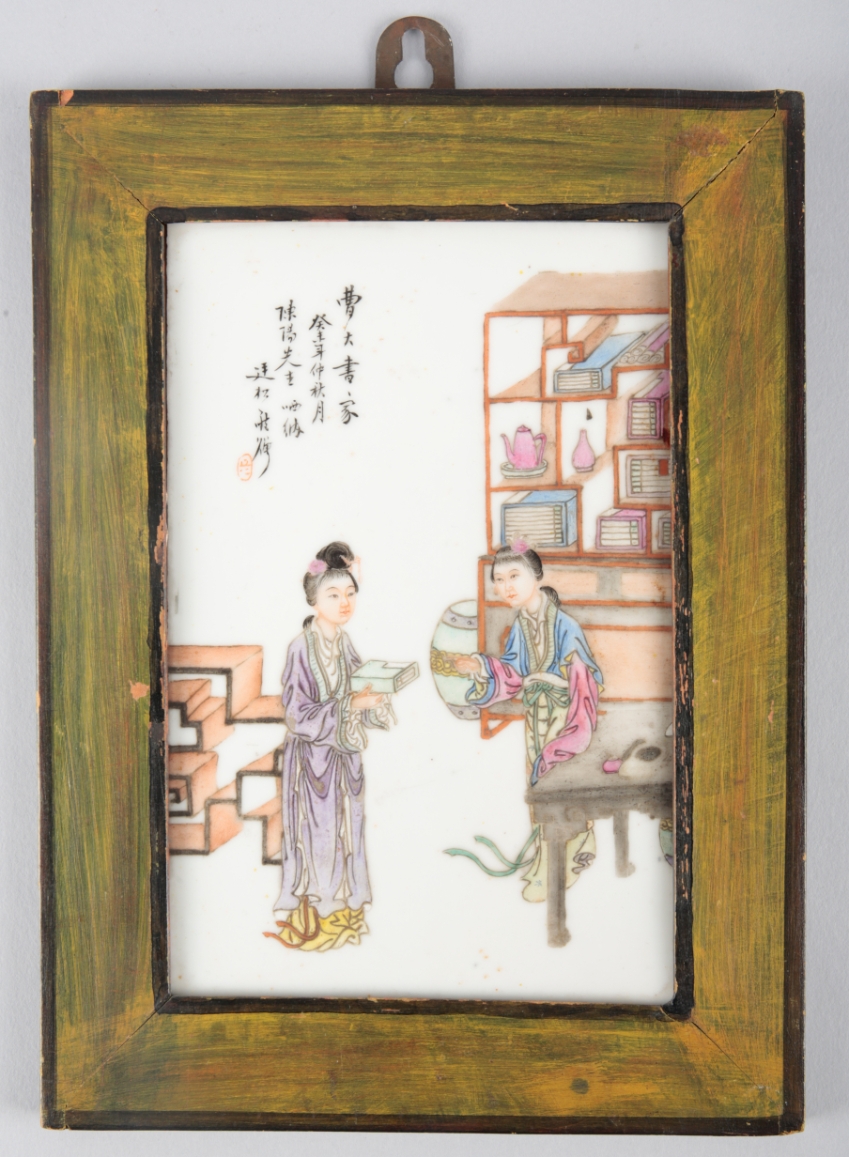 曹大書家
癸未年仲秋月
陳陽先生哂纳
廷松敬贈